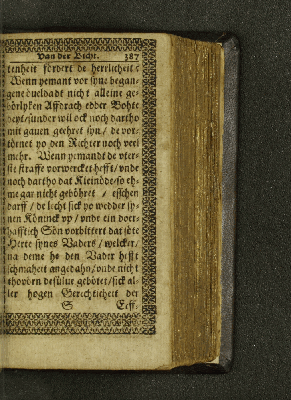 Van der Bicht. 387
tenheit förbert de herrlicheit:
Wenn yemant vor syne began-
gene dueldadt nicht alleine ge-
börlyken Affdrach edder Bohte
deyt / sunder wil ock noch dartho
mit gauen geehret syn / de vor-
törnet yo den Richter noch veel
mehr. Wenn yemandt de üter-
ste straffe vorwercket hefft / vnde
noch dartho dat Kleinöde / so eh-
me gar nicht geböhret / esschen
darff / de lecht sick yo wedder sy-
nen Köninck vp / vnde ein doer-
hafftich Sön vorbittert dat söte
Herte synes Vaders / welcker /
na deme he den Vader hefft
schmaheit angedahn / vnde nicht
thovörn desülue gebötet / sick al-
ler hogen Gerechticheit der
S Erff-